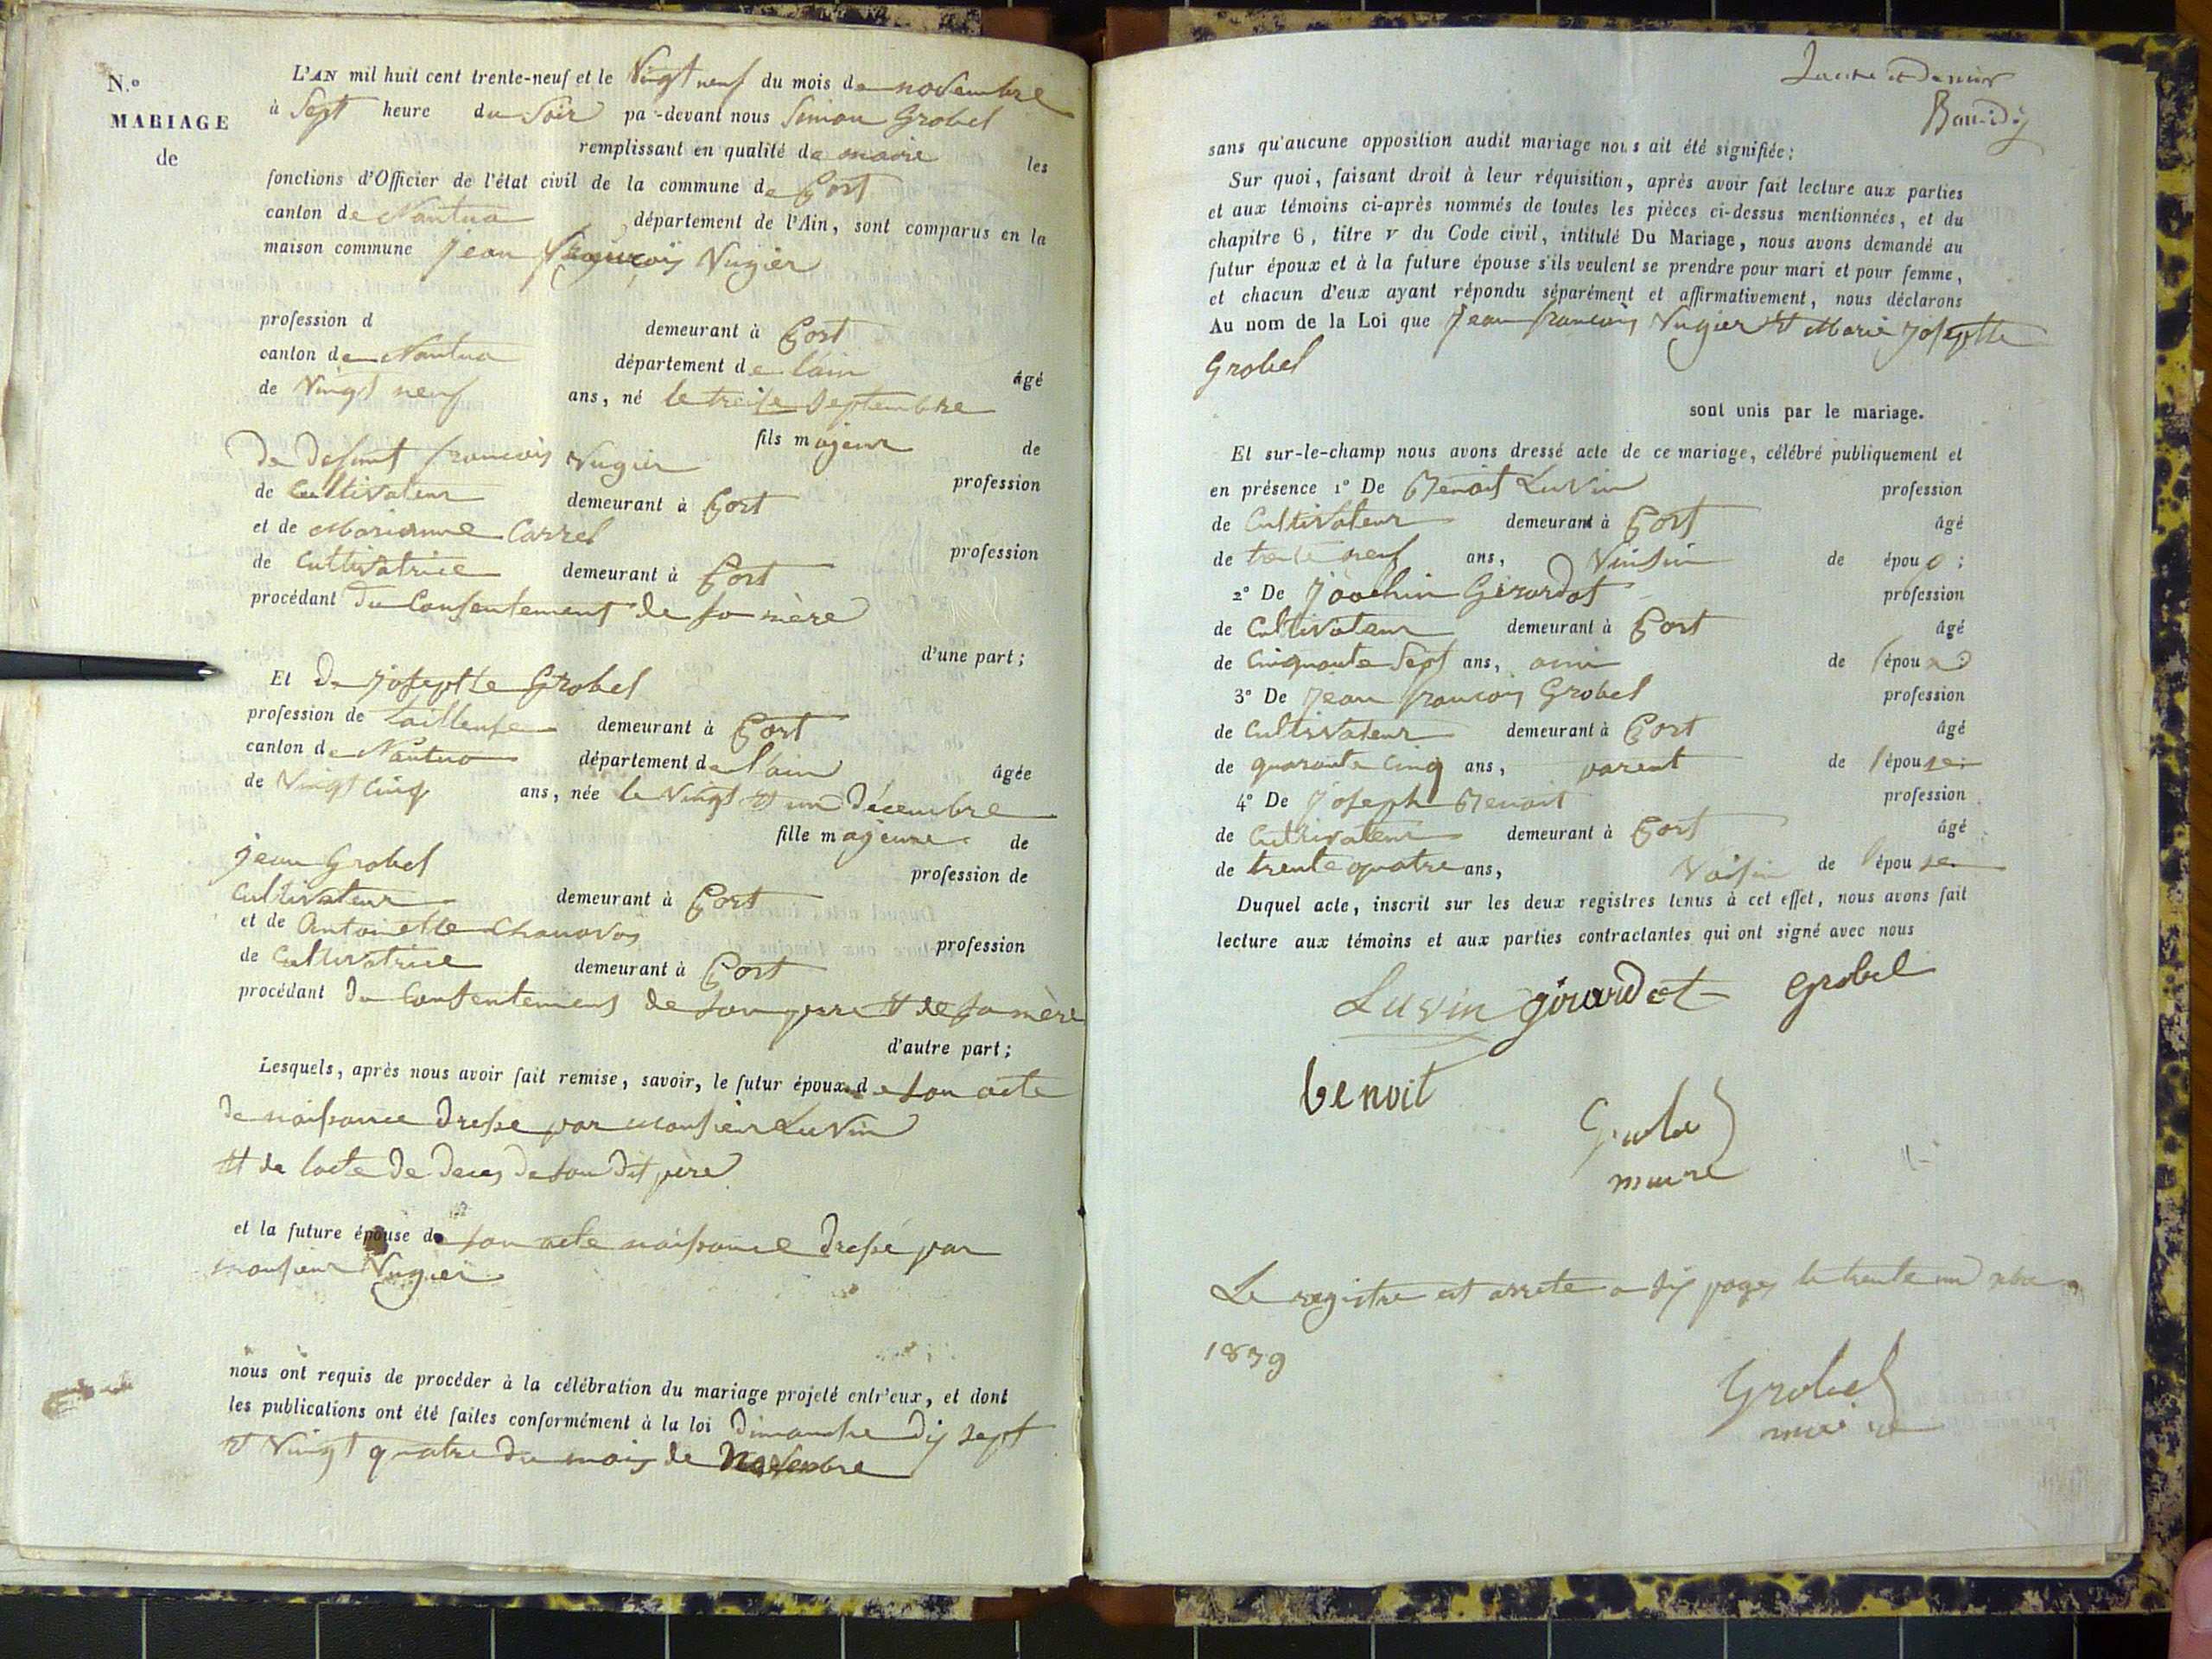 N.o
MARIAGE
de
L'AN mil huit cent trente-neuf et le Vingt neuf du mois de novembre
à Sept heure du Soir pa-devant nous Simon Grobel
remplissant en qualité de maire les
fonctions d'Officier de l'état civil de la commune de Port
canton de Nantua département de l'Ain, sont comparus en la
maison commune jean françois Nugier
profession d demeurant à Port
canton de Nantua département de lain âgé
de Vingt neuf ans, né le treise Septembre
fils majeur de
de defunt francois Nugier profession
de Cultivateur demeurant à Port
et de Marianne Carrel profession
de Cultivatrice demeurant à Port
procédant du Consentement de sa mère
d'une part;
Et de josephte Grobel
profession de tailleuse demeurant à Port
canton de Nantua département de l'ain âgée
de Vingt Cinq ans, née le Vingt et un décembre
fille majeure de
jean Grobel profession de
Cultivateur demeurant à Port
et de Antoinette Chanovas profession
de Cultivatrice demeurant à Port
procédant du Consentement de son perre et de sa mère
d'autre part;
Lesquels, après nous avoir fait remise, savoir, le futur époux de son acte
de naissance dresse par Monsieur Luvin
et de lacte de deces de son dit père
et la future épouse de son acte naissance dressé par
monsieur Nugier
nous ont requis de procéder à la célébration du mariage projeté entr'eux, et dont
les publications ont été faites conformément à la loi dimanche dix sept
et Vingt quatre du mois de Novembre
sans qu'aucune opposition audit mariage nous ait été signifiée;
Sur quoi, faisant droit à leur réquisition, après avoir fait lecture aux parties
et aux témoins ci-après nommés de toutes les pièces ci-dessus mentionnées, et du
chapitre 6, titre v du Code civil, intitulé Du Mariage, nous avons demandé au
futur époux et à la future épouse s'ils veulent se prendre pour mari et pour femme,
et chacun d'eux ayant répondu séparément et affirmativement, nous déclarons
Au nom de la Loi que jean francois Nugier et Marie josephte
Grobel
sont unis par le mariage.
Et sur-le-champ nous avons dressé acte de ce mariage, célébré publiquement et
en présence 1° De Benoit Luvin profession
de Cultivateur demeurant à Port âgé
de trente neuf ans, de épou
2° De joachin Girardot profession
de Cultivateur demeurant à Port âgé
de Cinquante Sept ans, ami de l'époux
3° De jean francois Grobel profession
de Cultivateur demeurant à Port âgé
de quarante Cinq ans, parent de l'épouse;
4° De joseph Benoit profession
de Cultivateur demeurant à Port âgé
de trente quatre ans, Voisin de l'épouse
Duquel acte, inscrit sur les deux registres tenus à cet effet, nous avons fait
lecture aux témoins et aux parties contractantes qui ont signé avec nous
Luvin girardot grobel
benoit
Grobel
maire
Le registre est arrete a six pages le trente un xbre
1839
Grobel
maire